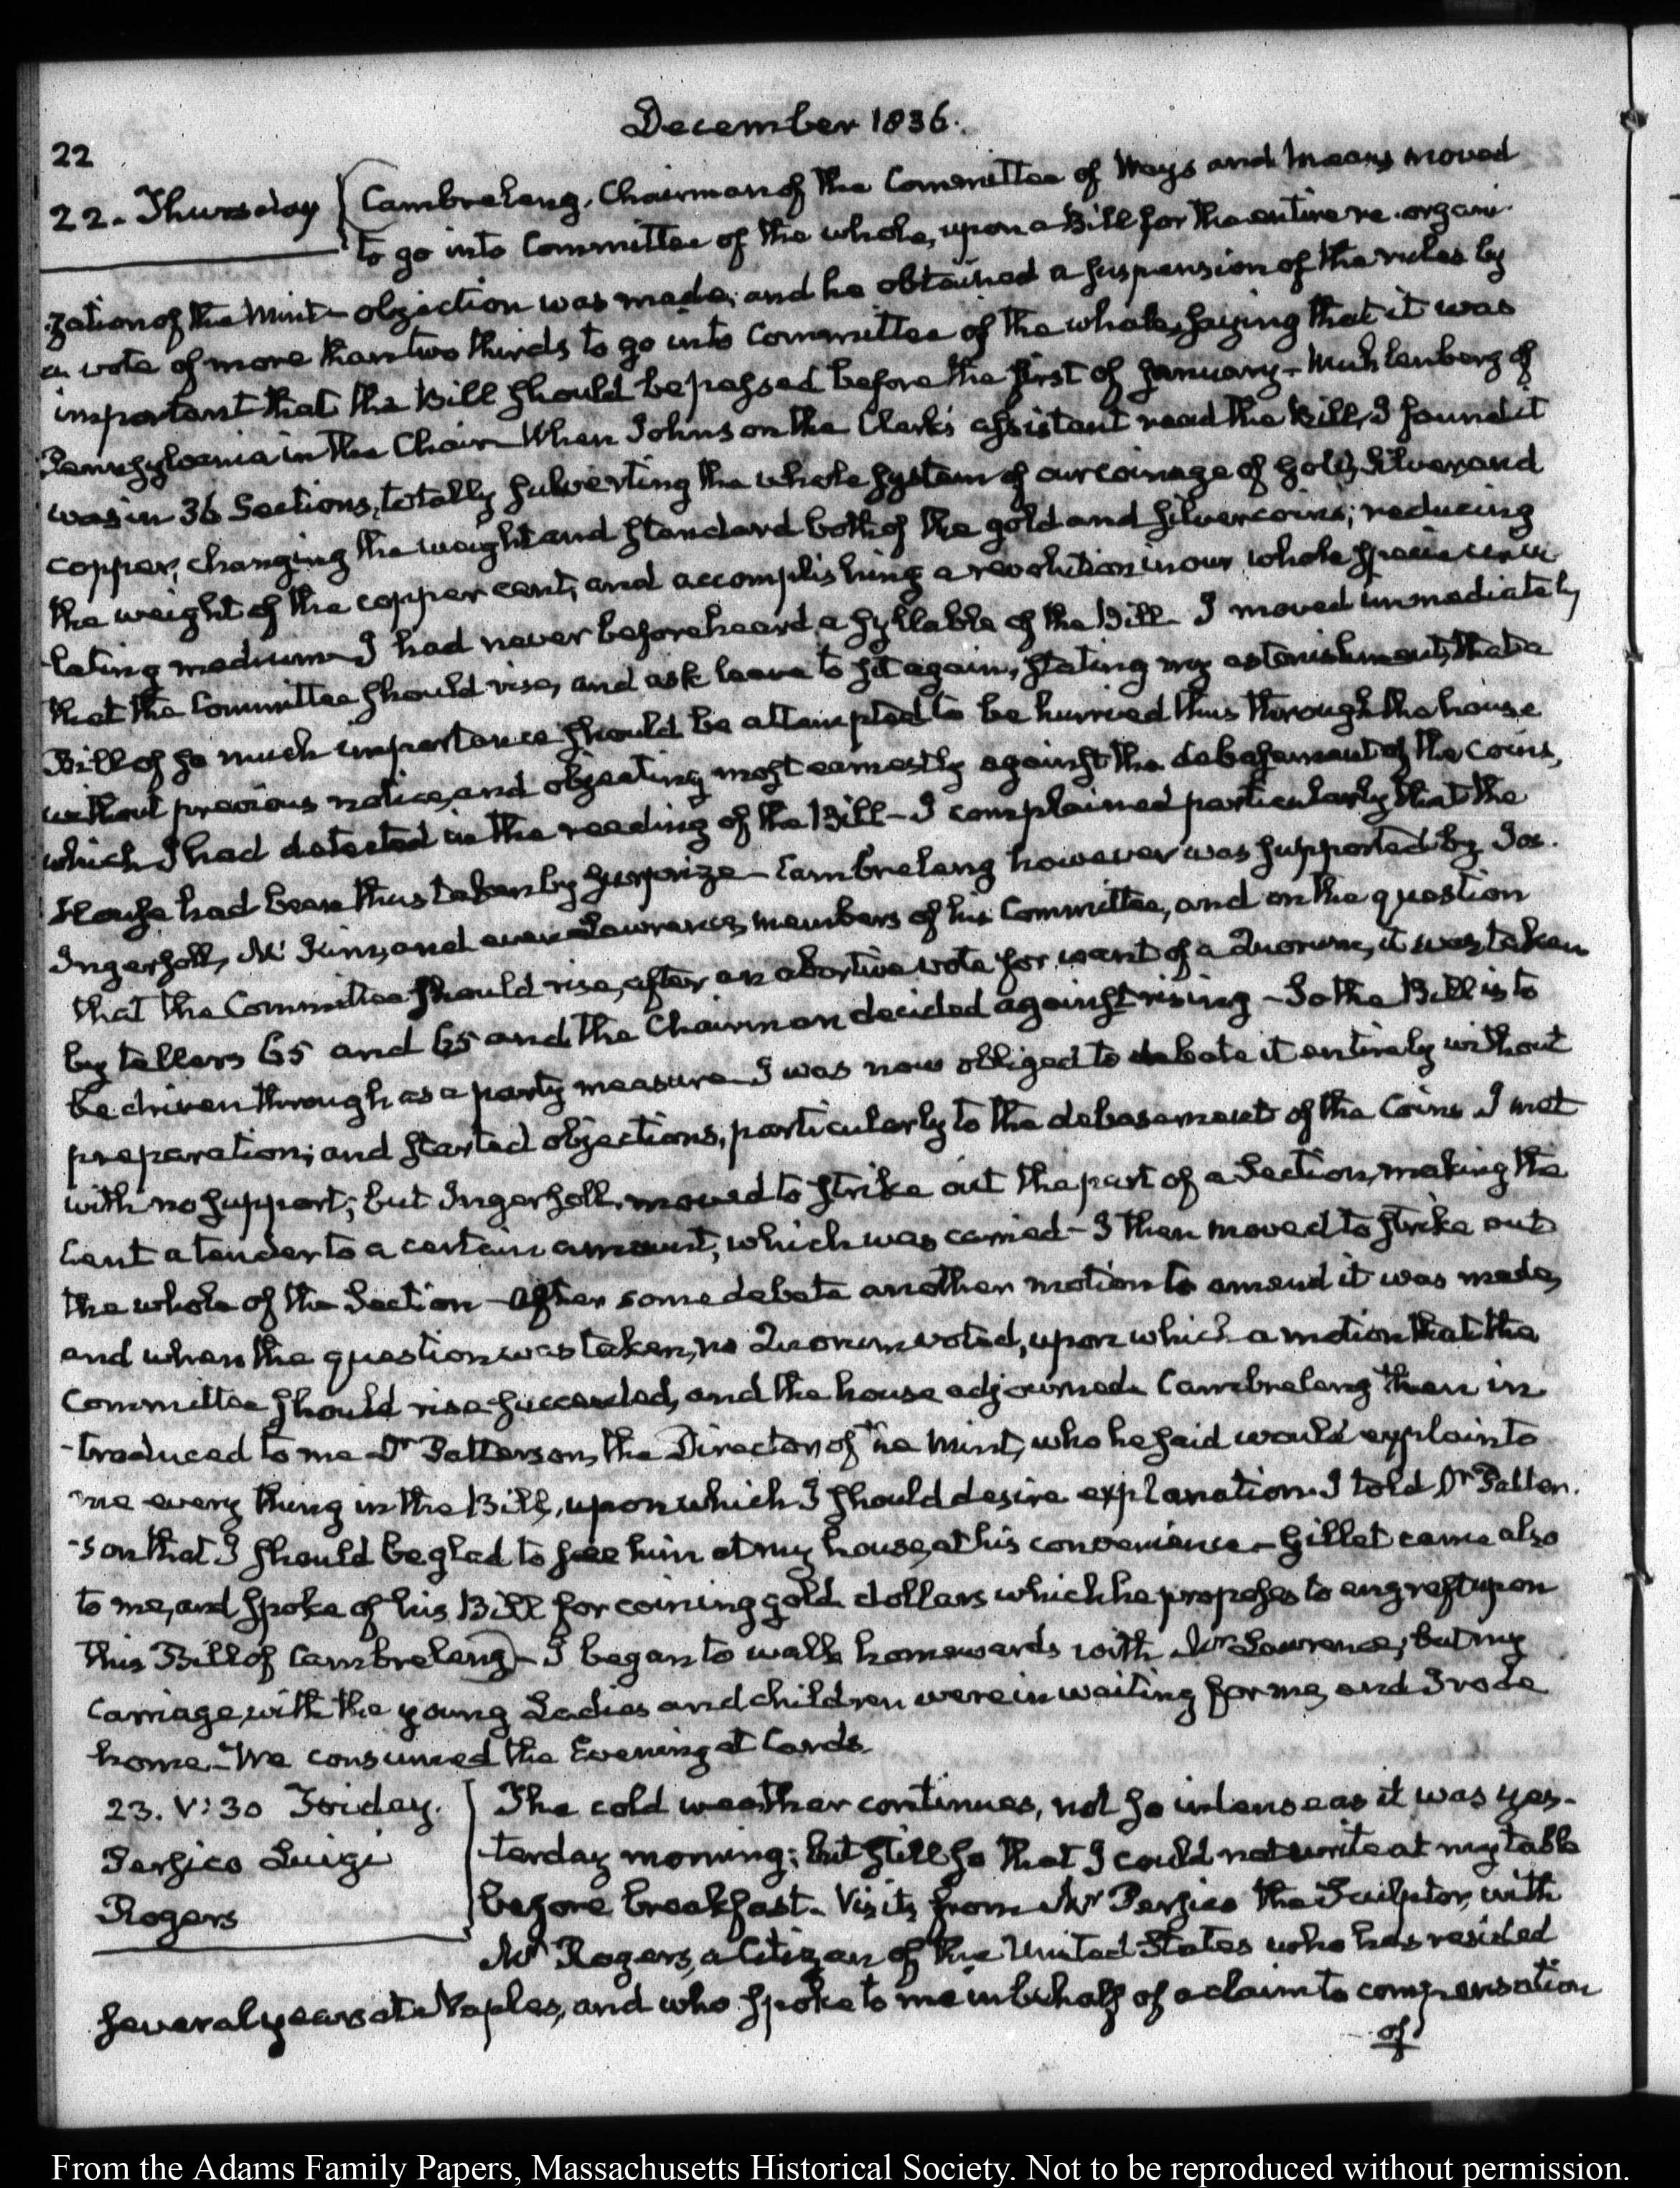 December 1836.
22
22. Thursday
Cambreleng, Chairman of the Committee of Ways and Means moved
to go into Committee of the whole, upon a Bill for the entire re-organi-
-zation of the Mint – objection was made; and he obtained a suspension of the rules by
a vote of more than two thirds to go into Committee of the whole, saying that it was
important that the Bill should be passed before the first of January – Muhlenberg of
Pennsylvania in the Chair – When Johnson the Clerk's assistant read the Bill, I found it
was in 36 Sections, totally subverting the whole system of our coinage of gold, Silver and
copper, changing the weight and standard both of the gold and silver coins; reducing
the weight of the copper cent, and accomplishing a revolution in our whole specie circu-
-lating medium – I had never before heard a syllable of the Bill – I moved immediately
that the Committee should rise, and ask leave to sit again, stating my astonishment, that a
Bill of so much importance should be attempted to be hurried thus through the house
without previous notice, and objecting most earnestly against the debasement of the Coins,
which I had detected in the reading of the Bill – I complained particularly that the
House had been thus taken by surprize – Cambreleng however was supported by Jos.
Ingersoll, Mc Kim, and even Lawrence, members of his Committee, and on the question
that the Committee should rise, after an abortive vote for want of a Quorum, it was taken
by tellers 65 and 65 and the Chairman decided against rising – So the Bill is to
be driven through as a party measure – I was now obliged to debate it entirely without
preparation; and started objections, particularly to the debasement of the Coins I met
with no support; but Ingersoll moved to strike out the part of a Section, making the
Cent a tender to a certain amount, which was carried – I then moved to strike out
the whole of the Section – After some debate another motion to amend it was made,
and when the question was taken, no Quorum voted, upon which a motion that the
Committee should rise succeeded, and the house adjourned. Cambreleng then in
-troduced to me Dr Patterson, the Director of the Mint, who he said would explain to
me every thing in the Bill, upon which I should desire explanation. I told Dr Patter-
-son that I should be glad to see him at my house, at his convenience – Gillet came also
to me, and spoke of his Bill for coining gold dollars which he proposes to engraft upon
this Bill of Cambreleng – I began to walk homewards with Mr Lawrence; but my
Carriage, with the young Ladies and children were in waiting for me, and I rode
home – We consumed the Evening at Cards.
23. V:30 Friday.
Persico Luigi
Rogers
The cold weather continues, not so intense as it was yes-
-terday morning; but still so that I could not write at my table
before breakfast – Visits from Mr Persico the Sculptor, with
Mr Rogers, a Citizen of the United States who has resided
several years at Naples, and who spoke to me in behalf of a claim to compensation
of
From the Adams Family Papers, Massachusetts Historical Society. Not to be reproduced without permission.